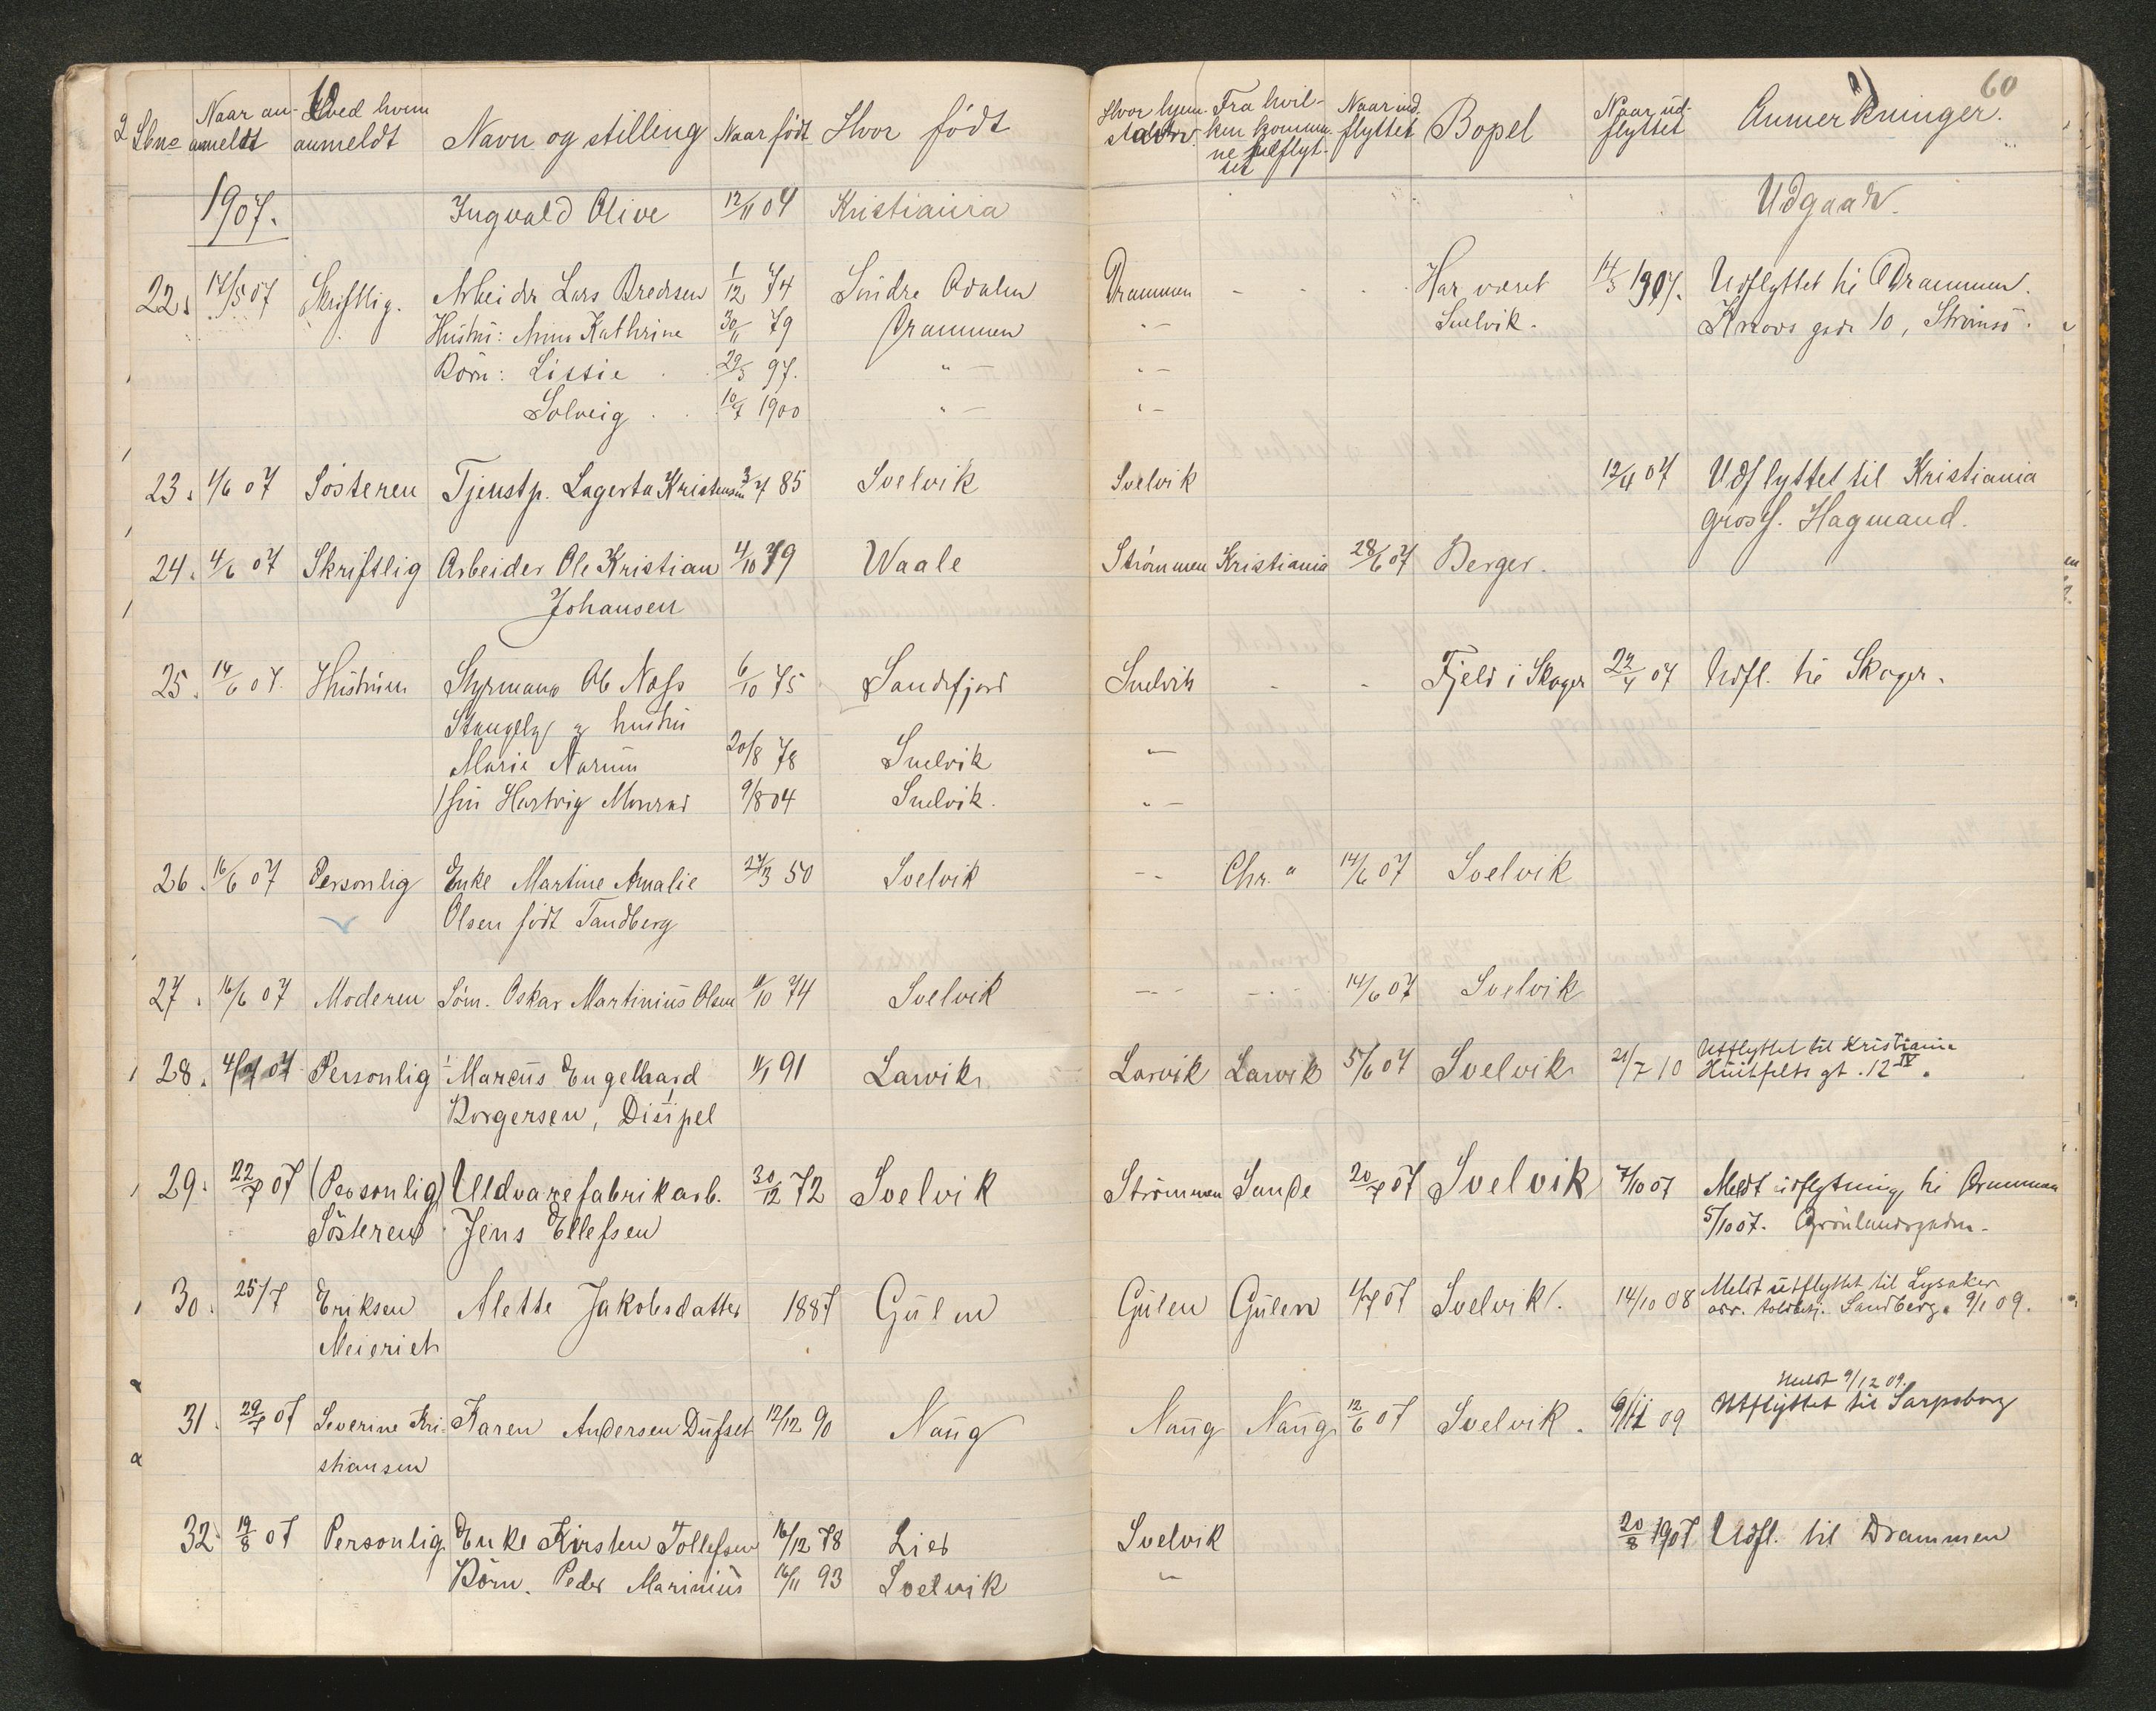 Lbno Naar an- Hved hvem Navn og stilling Naar født Hvor født Hvor hjem- Fra hvil- Naar ind- Bopel Naar ud- Anmerkninger. 60
anmeldt anmeldt ken kommu- flyttet flyttet
ne indflyt-
tet
1907. Ingvald Olive 12/11 04 Kristiania Udgaar.
22. 17/5 07 Skriftlig. Arbeider Lars Bredesen 1/12 74 Søndre Odalen Drammen - - - Har været 14/5 1907. Udflyttet til Drammen.
Hustru: Anna Kathrine 30/11 79 Drammen "- Svelvik. gade 10, Strømsø.
Børn: Lissie 29/5 97. "- "-
Solveig 10/7 1900 "- "-
23. 1/6 07 Søsteren Tjenstp. Lagerta Kristensen 3/7 85 Svelvik Svelvik 12/4 07 Udflyttet til Kristiania
gross. Hagmand.
24. 4/6 07 Skriftlig Arbeider Ole Kristian 4/10 79 Waale Strømmen Kristiania 28/6 07 Berger.
Johansen
25. 14/6 07. Hustruen Styrmand Ole Næss 6/10 75 Sandefjord Svelvik - - Fjeld i Skoger 22/4 07 Udfl. til Skoger.
hustru
Marie Narum 20/8 78 Svelvik "-
søn Hartvig Monrad 9/8 04 Svelvik. "-
26. 16/6 07 Personlig Enke Martine Amalie 27/3 50 Svelvik -- Chr. a 14/6 07 Svelvik
Olsen født Tandberg
27. 16/6 07 Moderen Søm. Oskar Martinius Olsen 11/10 74 Svelvik -- -- 14/6 07 Svelvik
28. 4/7 07 Personlig Marcus Engelhard 11/1 91 Larvik Larvik Larvik 5/6 07 Svelvik 21/7 10 Utflyttet til Kristiania
Borgersen, Disipel Huitfelts gt. 12 IV.
29. 22/7 07 (Personlig) Uldvarefabrikarb. 30/12 72 Svelvik Strömmen Sande 20/7 07 Svelvik 7/10 07 Meldt udflytning til Drammen
Søsteren Jens Ellefsen 5/10 07. Grønlandsgaden.
30. 25/7 Eriksen Alette Jakobsdatter 1887 Gulen Gulen Gulen 1/7 07 Svelvik. 14/10 08 Meldt utflyttet til Lysaker
Meieriet adr. Sandberg. 9/1 09.
31. 29/7 07 Severine Kri- Karen Andersen Dufset 12/12 90 Nang Nang Nang 12/6 07 Svelvik. 6/11 09 Meldt 9/12 09.
stiansen Utflyttet til Sarpsborg
32. 19/8 07 Personlig Enke Kirsten Tollefsen 16/12 78 Lier Svelvik 20/8 1907 Udfl. til Drammen
Børn. Peder Marinius 16/11 93 Svelvik "-